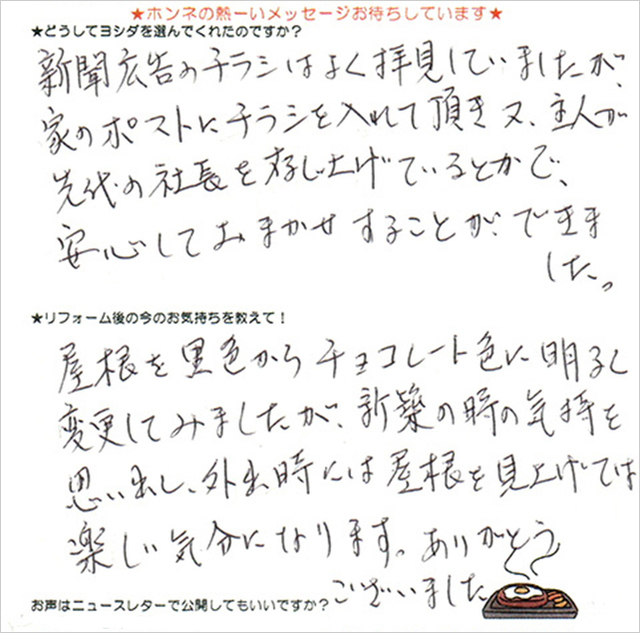 ★ホンネの熱ーいメッセージお待ちしています★
★どうしてヨシダを選んでくれたのですか？
新聞広告のチラシはよく拝見していましたが、
家のポストにチラシを入れて頂き又、主人が
先代の社長を存じ上げているとかで、
安心しておまかせすることが、できま
した。
★リフォーム後の今のお気持ちを教えて！
屋根を黒色からチョコレート色に明るく
変更してみましたが、新築の時の気持を
思い出し、外出時には屋根を見上げては
楽しい気分になります。ありがとう
ございました
お声はニュースレターで公開してもいいですか？